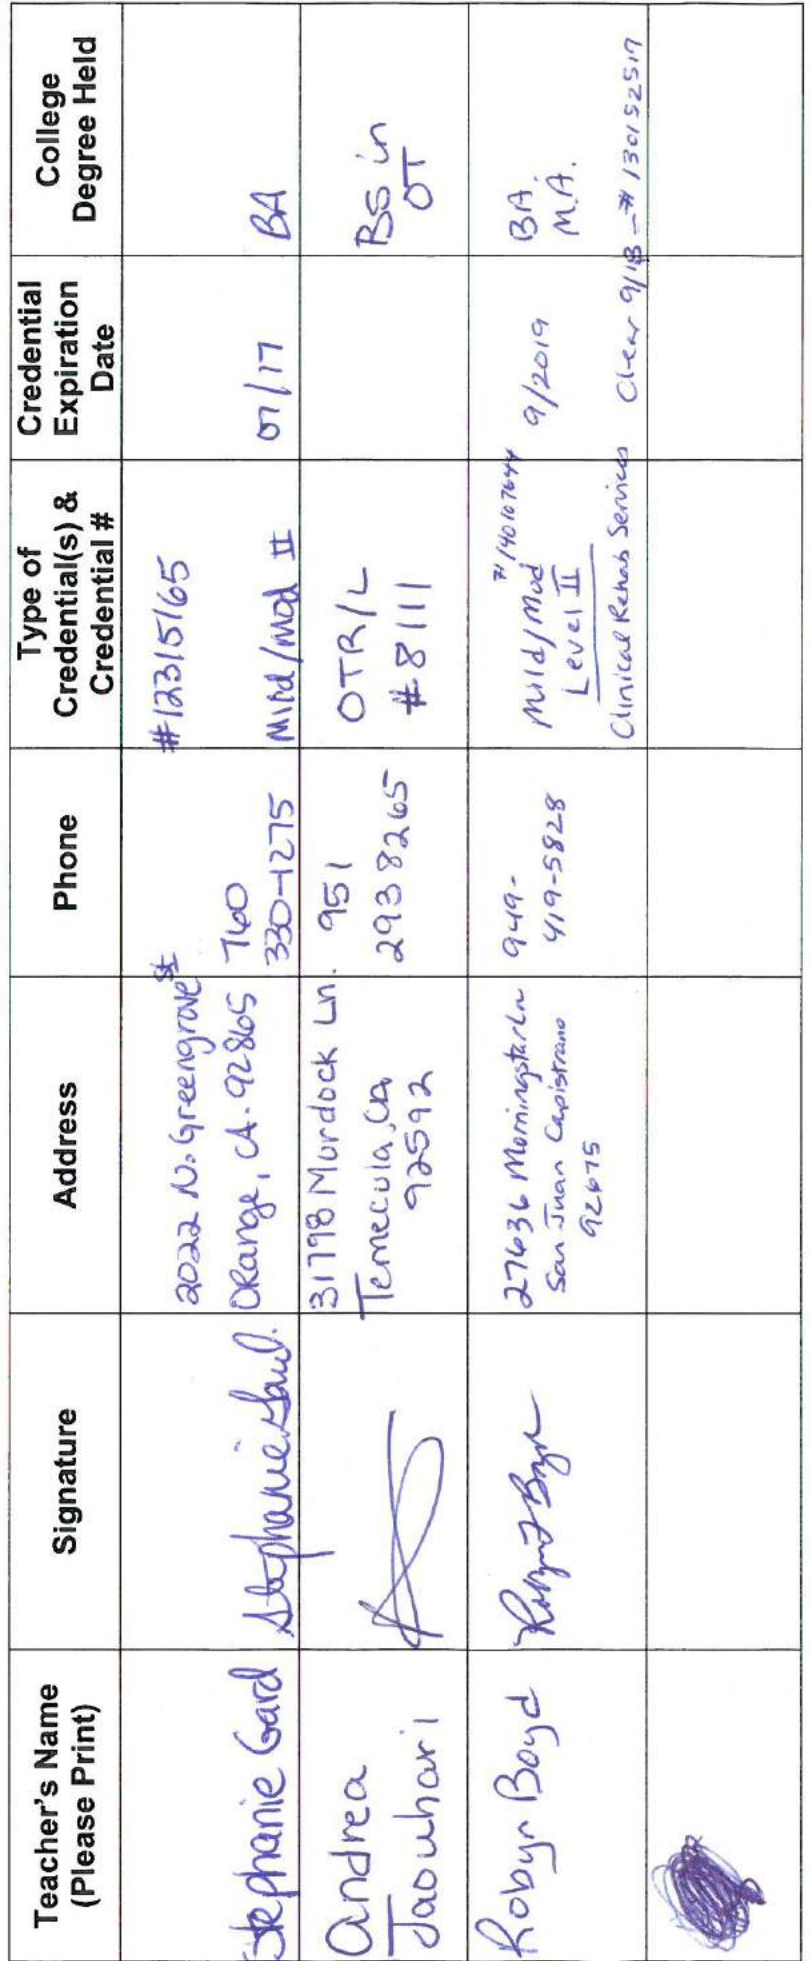 Teacher's Name
(Please Print)
Signature
Address
Phone
Type of
Credential(s) &
Credential #
Credential
Expiration
Date
College
Degree Held
Stephanie Gard
Stephanie Gard.
2022 N. Greengrove St
Orange, CA. 92865
760
330-1275
#12315165
Mild/Mod II
07/17
BA
Andrea
Jaouhari
31798 Murdock Ln.
Temecula, Ca,
92592
951
2938265
OTR/L
#8111
BS in
OT
Robyn Boyd
27636 Morningstar Ln
San Juan Capistrano
92675
949-
419-5828
#140107644
Mild/Mod
Level II
Clinical Rehab Services
9/2019
Clear 9/18 - #130152517
BA.
M.A.